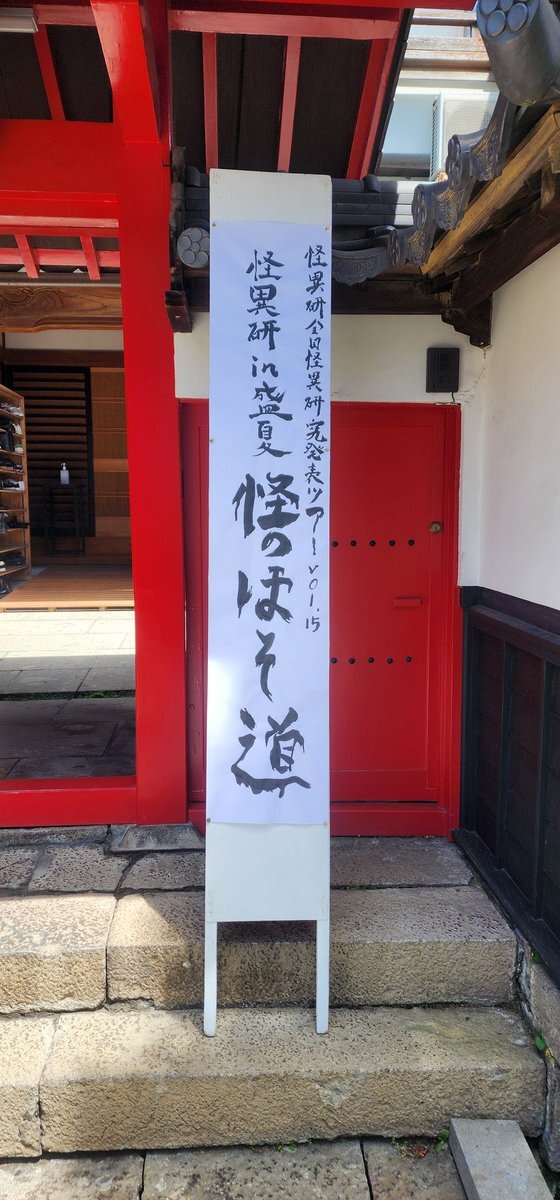 怪異研全日怪異研究発表ツアーvol.15
怪異研in盛夏
怪のほそ道